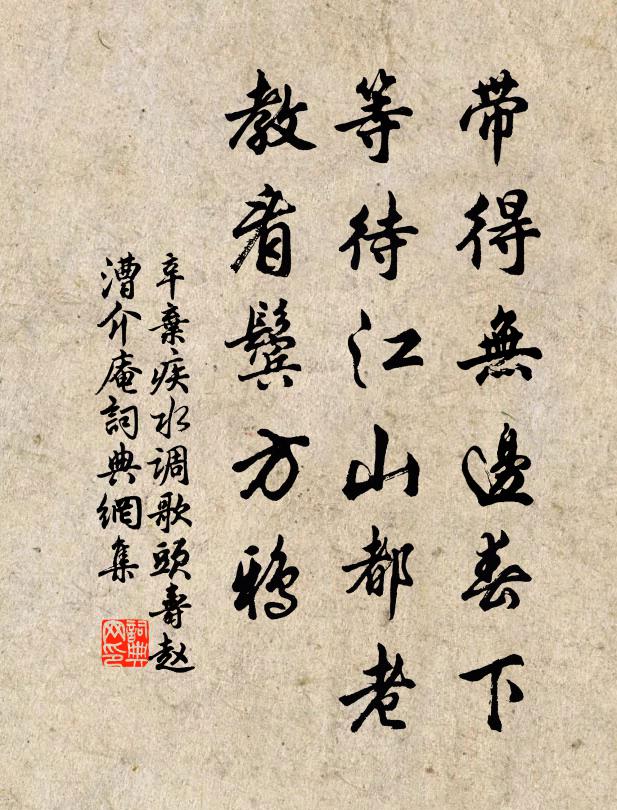 带得無邊春下
等待江山都老
教看鬓方鴉
辛棄疾水调歌頭壽趙
漕介庵詞典網集
詞典网印